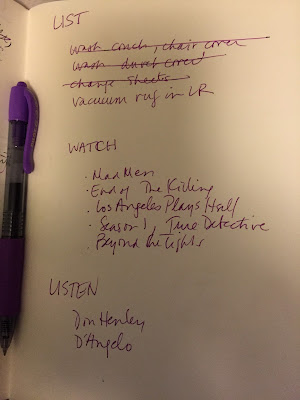 LIST
wash couch, chair cover
wash duvet cover
change sheets
vacuum rug in LR
WATCH
· Mad Men
· End of The Killing
· Los Angeles Plays Itself
· Season 1, True Detective
· Beyond the Lights
LISTEN
Don Henley
D'Angelo